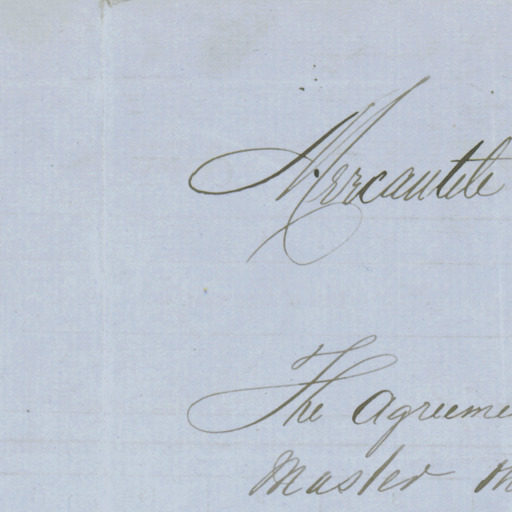 Mercantile
The agreeme
Master m